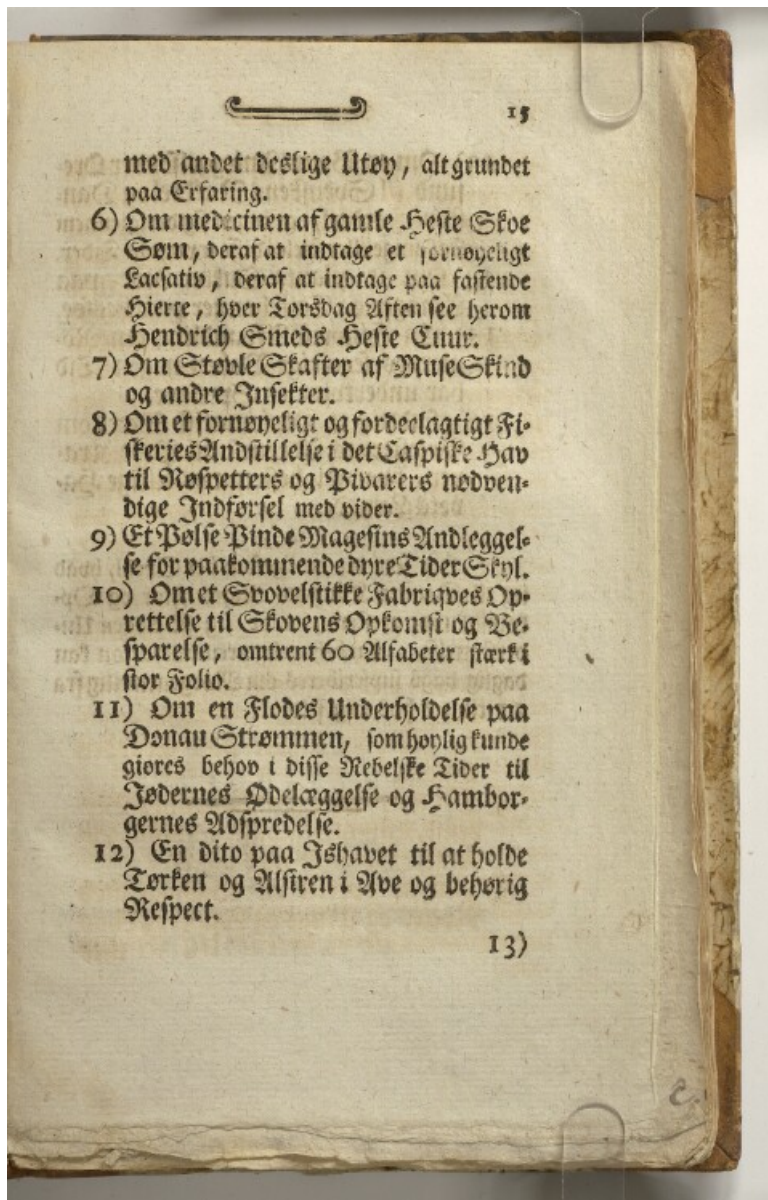 15
med andet deslige Utøy, alt grundet
paa Erfaring.
6) Om medicinen af gamle Heste Skoe
Søm, deraf at indtage et fornøyeligt
Lacsativ, deraf at indtage paa fastende
Hierte, hver Torsdag Aften see herom
Hendrich Smeds Heste Cuur.
7) Om Støvle Skafter af Muse Skind
og andre Insekter.
8) Om et fornøyeligt og fordeelagtigt Fi-
skeries Andstillelse i det Caspiske Hav
til Røspetters og Pivarers nødven-
dige Indførsel med vider.
9) Et Pølse Pinde Magesins Andleggel-
se for paakommende dyre Tider Skyl.
10) Om et Svovelstikke Fabriqves Op-
rettelse til Skovens Opkomst og Be-
sparelse, omtrent 60 Alfabeter stærk i
stor Folio.
11) Om en Flodes Underholdelse paa
Donau Strømmen, som høylig kunde
giøres behov i disse Rebelske Tider til
Jødernes Ødelæggelse og Hambor-
gernes Adspredelse.
12) En dito paa Ishavet til at holde
Tørken og Alsiren i Ave og behørig
Respect.
13)